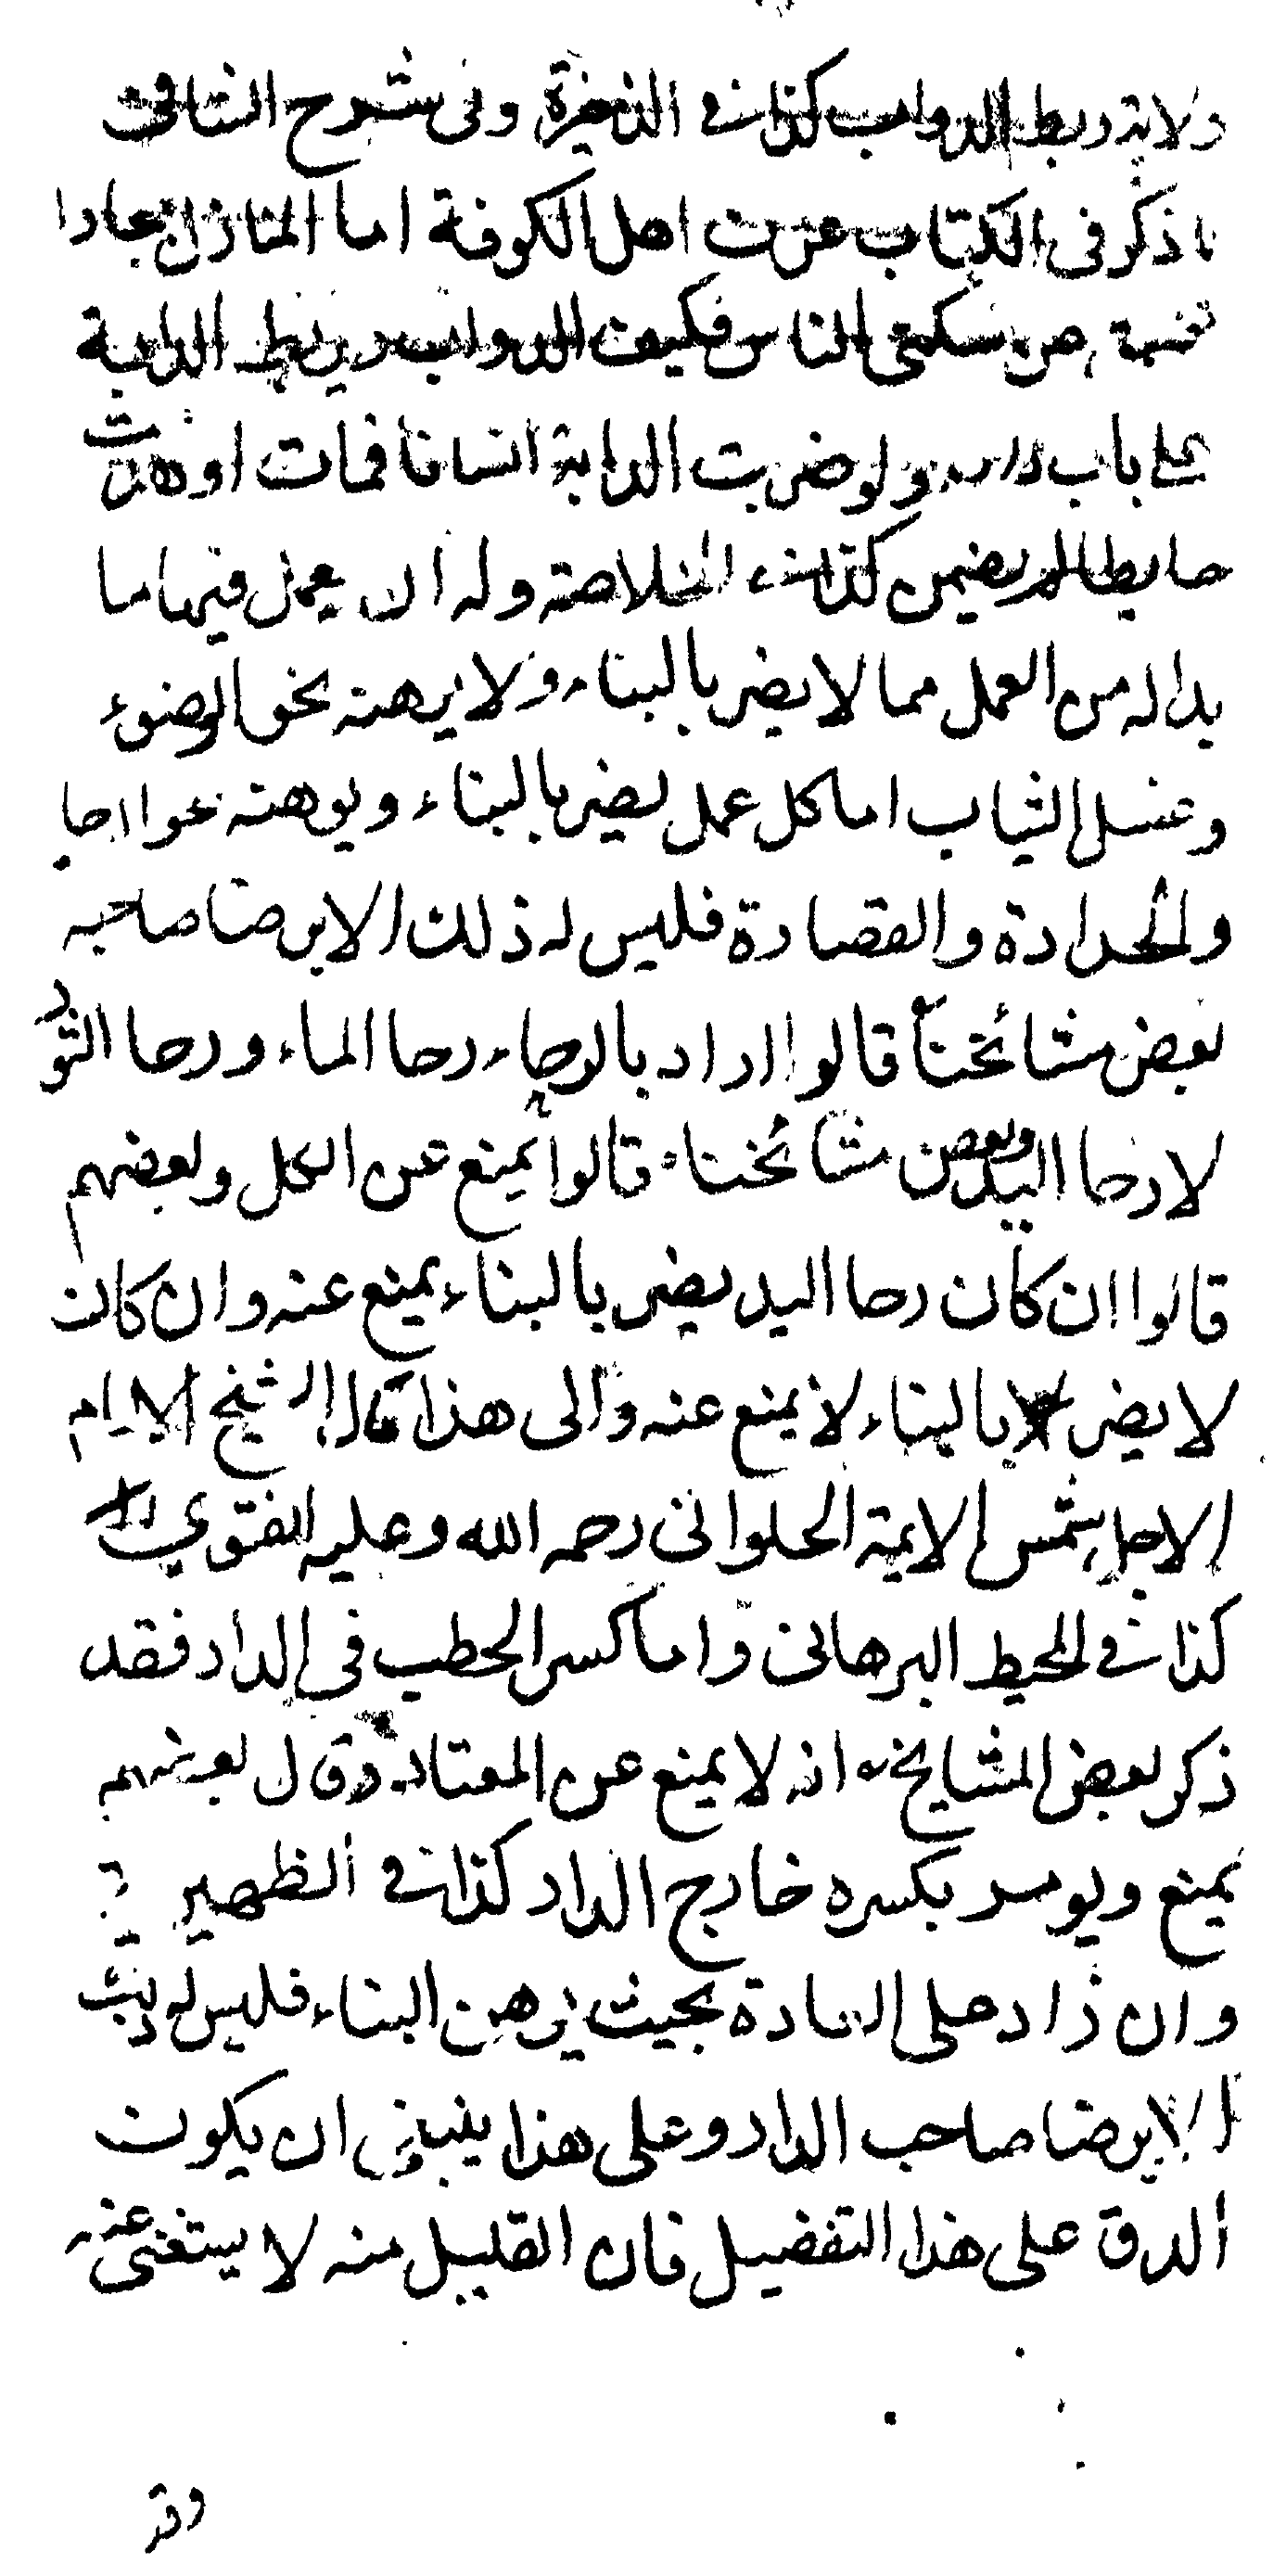 ولاية ربط الدواب كذا في الذخيرة وفي شرح الشافي
ما ذكر في الكتاب عرف اهل الكوفة اما المنازل ببخارا
تضيق عن سكنى الناس فكيف الدواب ويربط الدابة
على باب داره ولو ضربت الدابة انسانا فمات او هدمت
حايطا لم يضمن كذا في الخلاصة وله ان يعمل فيها ما
بدا له من العمل مما لا يضر بالبناء ولا يوهنه نحو الوضوء
وغسل الثياب اما كل عمل يضر بالبناء ويوهنه نحو الرحا
والحدادة والقصارة فليس له ذلك الا برضا صاحبه
بعض مشائخنا قالوا اراد بالرحاء رحا الماء ورحا الثور
لا رحا اليد وبعض مشائخنا قالوا يمنع عن الكل وبعضهم
قالوا ان كان رحا اليد يضر بالبناء يمنع عنه وان كان
لا يضر بالبناء لا يمنع عنه والى هذا مال الشيخ الامام
الاجل شمس الايمة الحلواني رحمه الله وعليه الفتوى
كذا في المحيط البرهاني واما كسر الحطب في الدار فقد
ذكر بعض المشايخ انه لا يمنع عن المعتاد وقال بعضهم
يمنع ويومر بكسره خارج الدار كذا في الظهيرية
وان زاد على العادة بحيث يوهن البناء فليس له ذلك
الا برضا صاحب الدار وعلى هذا ينبغي ان يكون
الدق على هذا التفضيل فان القليل منه لا يستغنى عنه
وقد